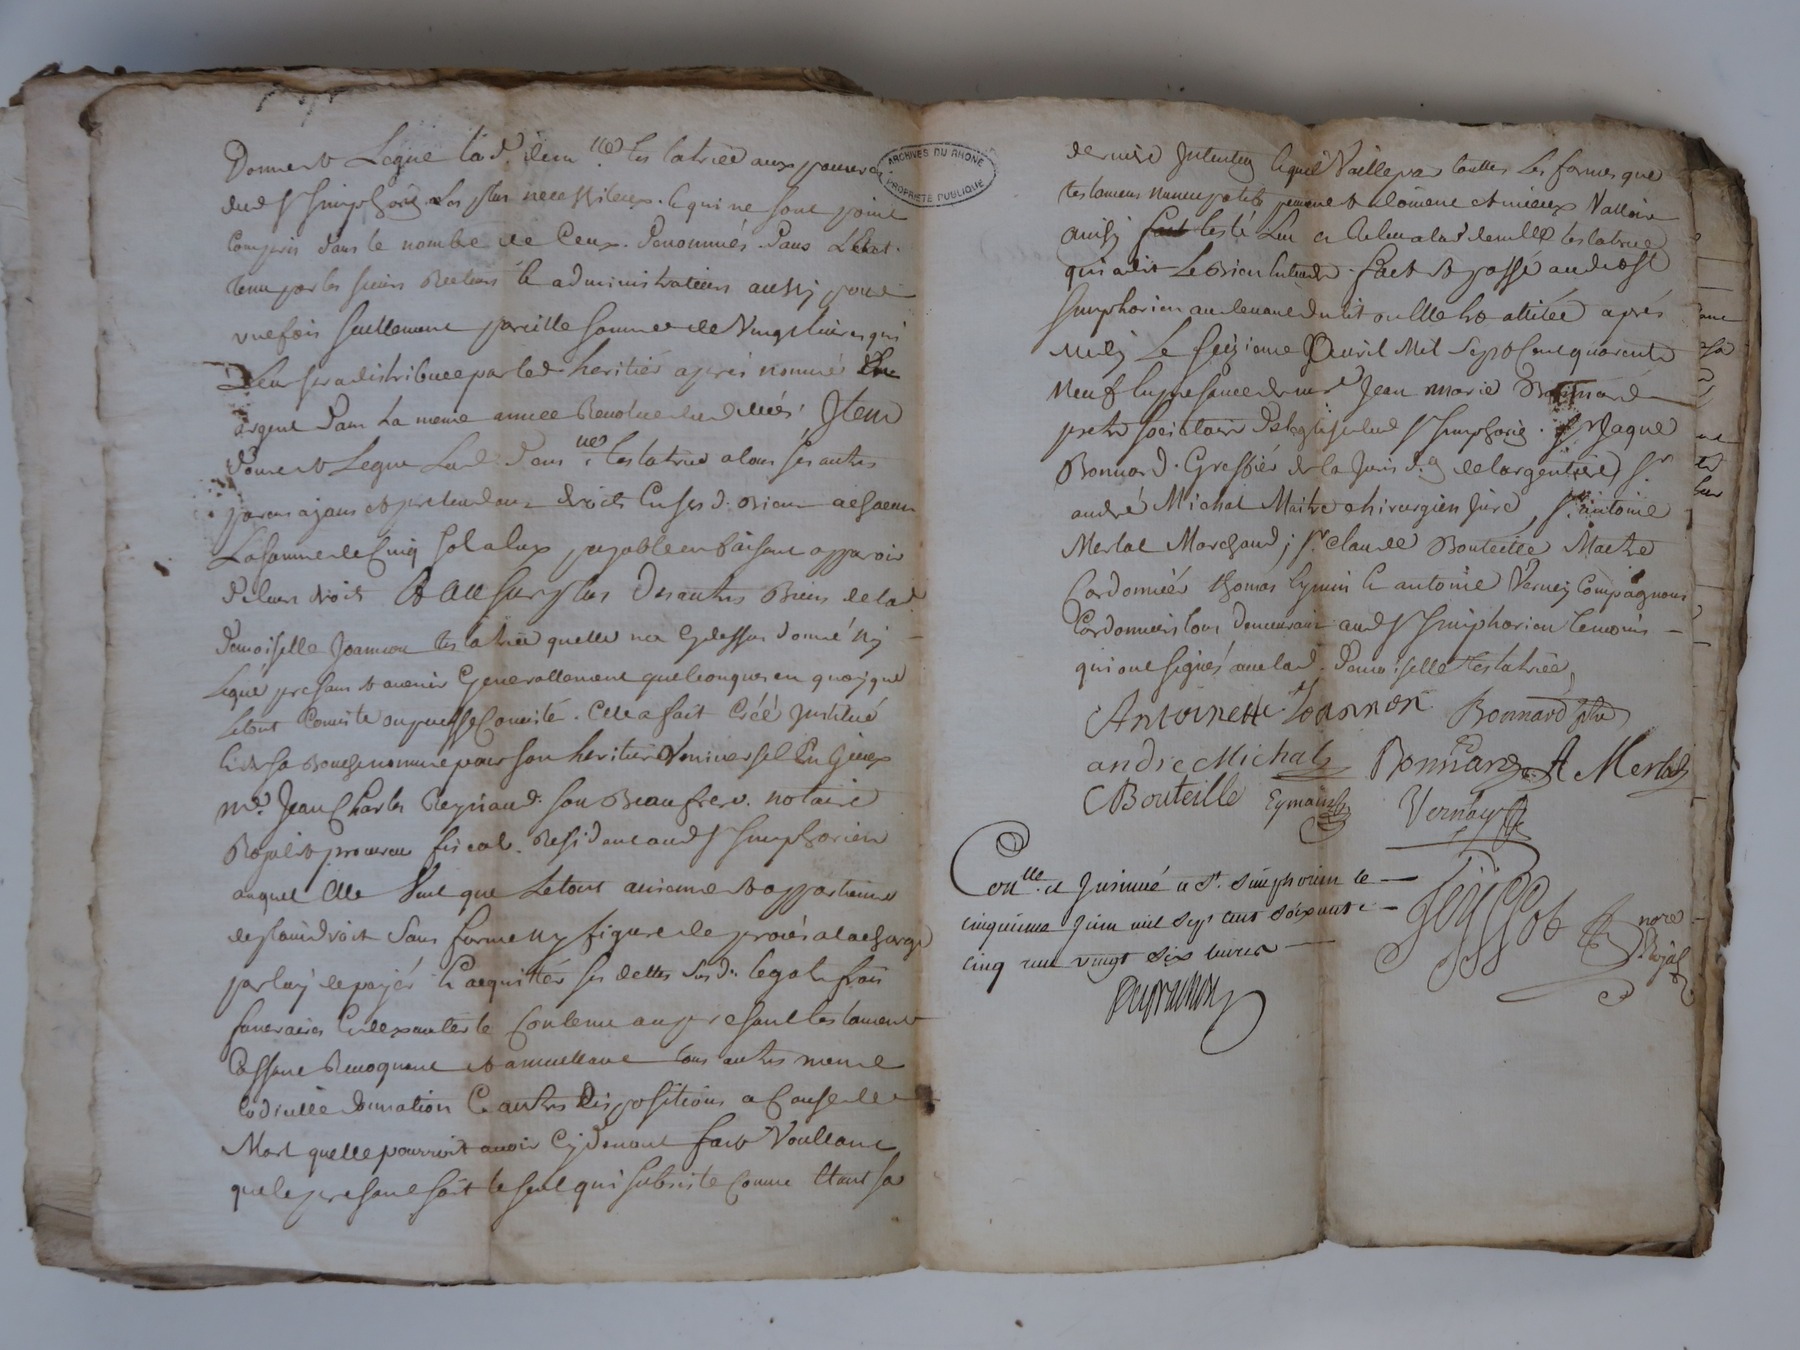 Donne & Legue lad. dem.lle testatrice aux pauvres
dud St Simphorien les plus necessiteux. & qui ne sont point
Compris dans le nombre de Ceux. Denommés. Dans L'état.
tenu par les sieurs Recteurs & administrateurs aussy pour
une fois seullement pareille somme de Vingt livres qui
Leur sera distribuee par led heritier après nommé En
argent Dans La meme année Revolue dud deces; Item
Donne & Legue Lad. Dem.lle testatrice a tous ses autres
parens ayans & pretendans droits En ses d. Biens a chacun
La somme de Cinq sols a eux payable en faisant apparoir
De leurs droits & Au Surplus Des autres Biens de lad.
Demoiselle Joannon testatrice quelle n'a Cy dessus donné ny
Legué presans & avenir Generallement quelconques en quoy que
Le tout Consiste ou puisse Consisté. Elle a fait Créé Institué
& de sa Bouche nommé pour son heritier Universel En Yceux
me. Jean Charles Reynaud. son Beaufrere. notaire
Royal & procureur fiscal. Residant aud St Simphorien
auquel Elle Veut que Le tout avienne & appartienne
de plain droit Sans forme ny figure de procès a la charge
par luy de payér & acquittér ses dettes sus d. legats frais
funeraires & dexecuter le Contenu au present testament
Cassant Revoquant & annullant tous autres meme
Codicille donnation & autres Dispositions a Cause de
Mort quelle pourroit avoir Cy devant fait Voullant
que le present soit le seul qui subsiste Comme Etant sa
ARCHIVES DU RHONE
PROPRIETE PUBLIQUE
derniere Intention lequel Vaille par touttes Les formes que
testamens nuncupatifs peuvent & doivent et mieux Valloir
ainsy fait testé Lu et Relu a lad. demlle testatrice
qui a dit Le Bien Entendre. fait & passé aud. St
Simphorien au devant du lit ou Elle est attitée après
Midy Le seizieme Avril Mil Sept Cent quarente
Neuf En presance de mre Jean Marie Bonnard
pretre societaire De L'eglise dud St Simphorien. Sr Jaque
Bonnard. Greffiér de la Juris d.on de Largentiere, Sr
andré Michal Maitre chirurgien Juré, Sr antoine
Merlat Marchand; Sr claude Bouteille Maitre
Cordonniér thomas Eymin & antoine Verney Compagnons
Cordonniers tous demeurant aud St Simphorien temoins
qui ont signés avec lad. Demoiselle testatrice,
Antoinette Joannon Bonnard ptre
andre Michal Bonnard A Merlat
C Bouteille Eymain Vernay
Conlle. et Insinué a St. simphorien le
cinquieme juin mil sept cent soixante
cinq reçu vingt six livres
nore
Royal